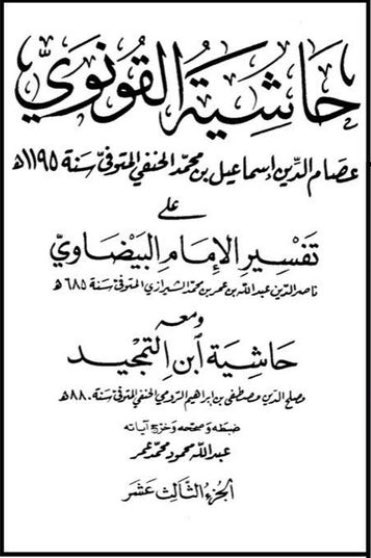 حَاشِيَة القُونَوِيّ
عصَام الدِّين إسمَاعيل بن محمَّد الحنَفي المتوفىّٰ سَنة ١١٩٥ هـ
عَلى
تَفسِير الإمَام البَيضَاويّ
ناصر الدّين عبد الله بن عمر بن محمّد الشيرازي المتوفى سَنة ٦٨٥ هـ
ومعه
حَاشِيَة ابن التَّمجِيد
مصلح الدين مصطفى بن إبراهيم الرومي الحنفي المتوفى سنة ٨٨٠ هـ
ضبطه وصححه وخرج آياته
عبد الله محمود محمّد عمر
الجزء الثالث عشر